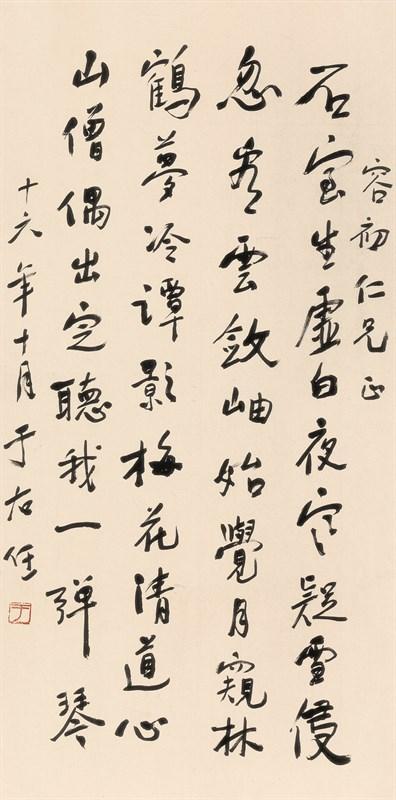 容初仁兄正
石室生虛白夜疑雪侵
忽看雲斂岫始覺月窺林
鶴夢冷譚影梅花清道心
山僧偶出定聽我一弹琴
十六年十月于右任